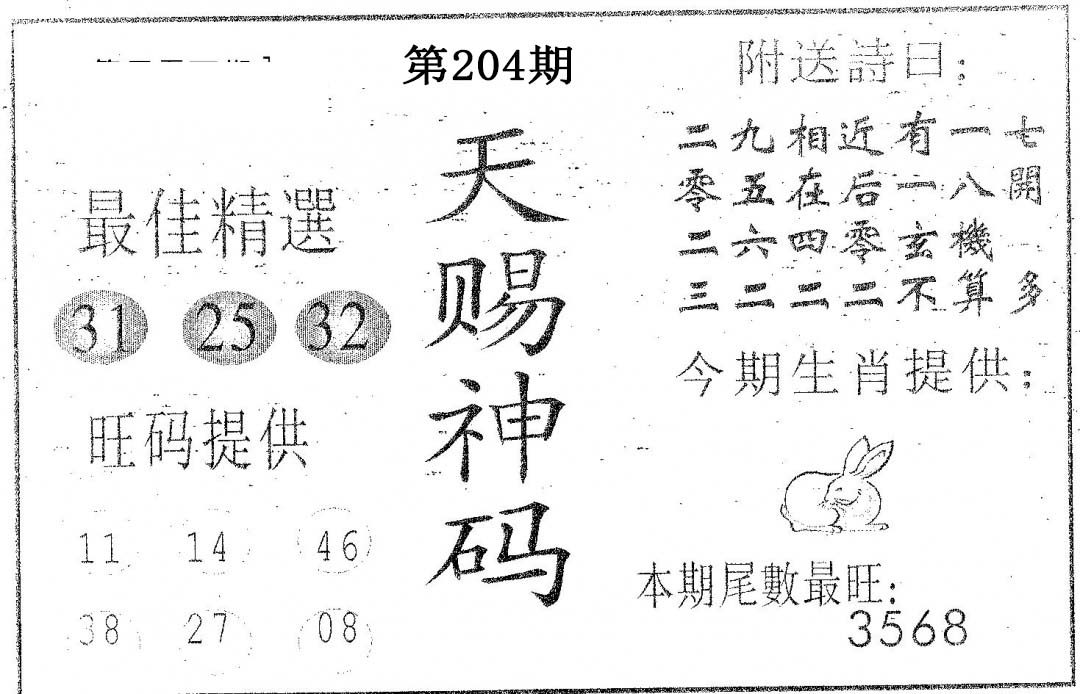 第204期
最佳精選
31 25 32
旺码提供
11 14 46
38 27 08
天赐神码
附送詩曰：
二九相近有一七
零五在后一八開
二六四零玄機
三二二二不算多
今期生肖提供：
本期尾數最旺：
3568